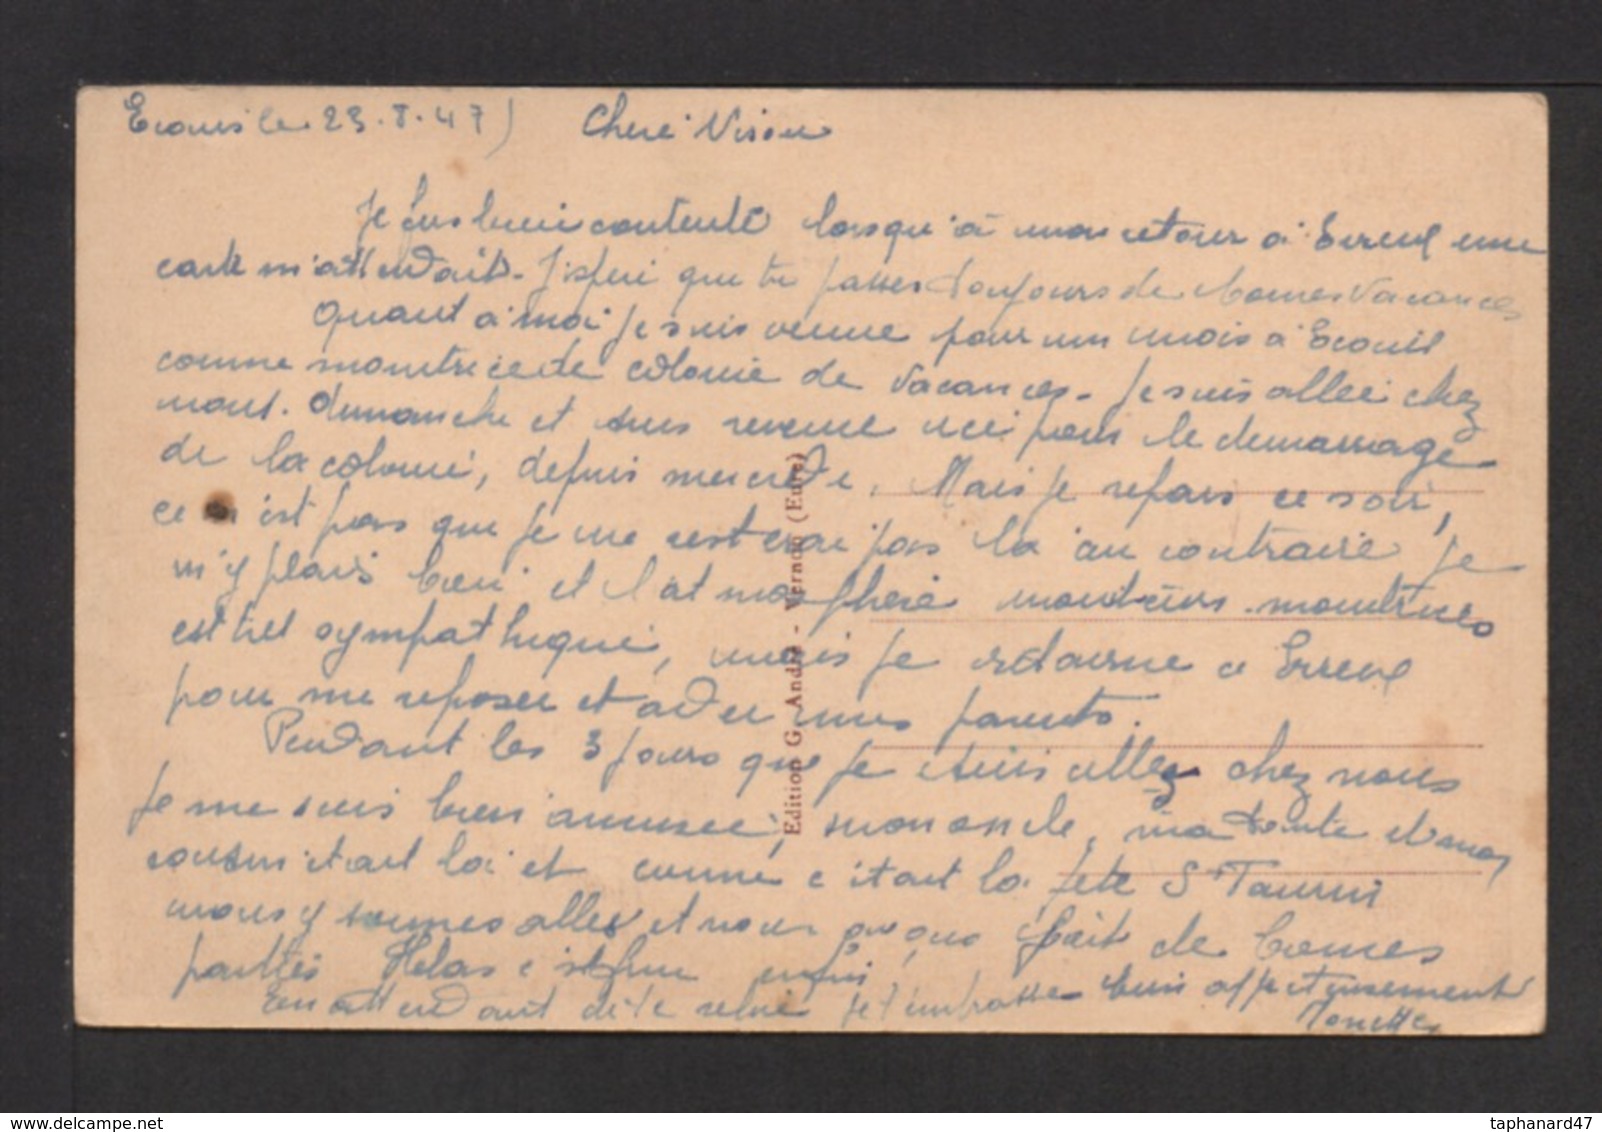 Ecouis le 23.8.47) Chere
Je fus bien contente lorsqu'à mon retour à Evreux une
carte m'attendait. J'espère que tu passes toujours de bonnes vacances
Quant à moi je suis venue pour un mois à Ecouis
comme monitrice de colonie de vacances. Je suis allée chez
nous dimanche et suis revenue ici pour le démarrage
de la colonie, depuis mercredi. Mais je repars ce soir,
ce n'est pas que je ne resterai pas là au contraire je
m'y plais bien et l'atmosphere moniteurs-monitrices
est très sympathique, mais je retourne à Evreux
pour me reposer et aider mes parents.
Pendant les 3 jours que je suis allée chez nous
je me suis bien amusée, mon oncle, ma tante et mon
cousin était là et comme c'était la fête St Taurin
nous y sommes allés et nous avons fait de bonnes
parties Helas c'est fini
En attendant de te revoir je t'embrasse bien affectueusement
Edition G. André - Vernon (Eure)
taphanard47